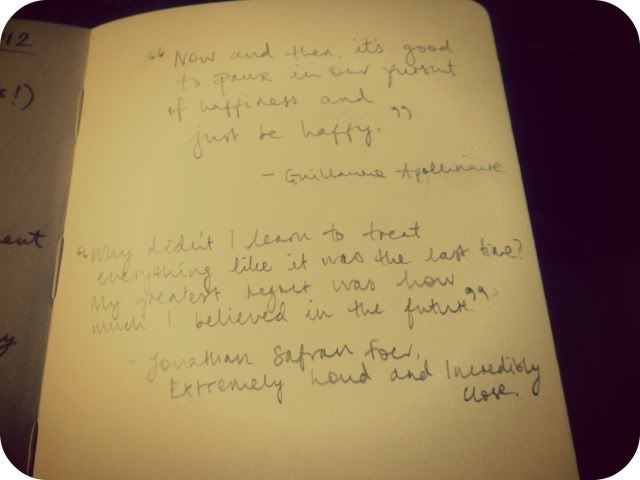 '12
!)
ent
y
“ Now and then, it's good
to pause in our pursuit
of happiness and
just be happy. ”
- Guillaume Apollinaire
“ Why didn't I learn to treat
everything like it was the last time?
My greatest regret was how
much I believed in the future ”
- Jonathan Safran Foer,
Extremely Loud and Incredibly
Close.